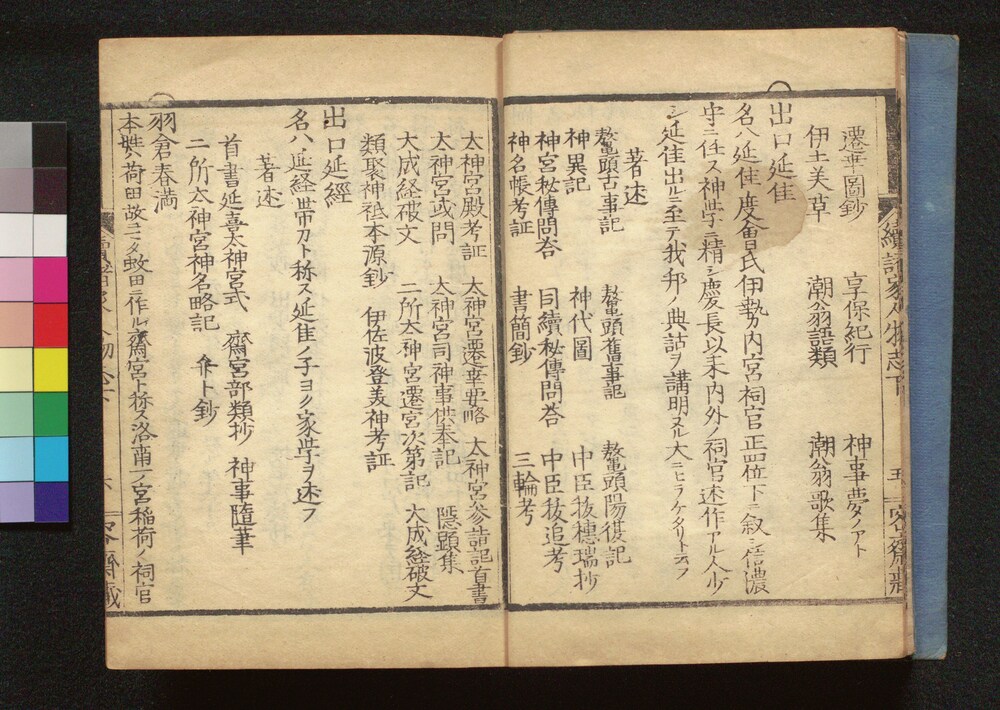 續諸家人物志下 五 容齋蔵
遷幸圖鈔 享保紀行 神事夢ノアト
伊土美草 潮翁語類 潮翁歌集
出口延佳
名ハ延佳度會氏伊勢内宮祠官正四位下ニ叙シ信濃
守ニ任ス神学ニ精シ慶長以来内外ノ祠官述作アル人少
シ延佳出ルニ至テ我邦ノ典詁ヲ講明スル大ニヒラケタリト云フ
著述
鼇頭古事記 鼇頭舊事記 鼇頭陽復記
神異記 神代圖 中臣祓穗瑞抄
神宮秘傳問答 同續秘傳問答 中臣祓追考
神名帳考証 書簡鈔 三輪考
太神宮殿考証 太神宮遷幸要略 太神宮參詣記首書
太神宮或問 太神宮司神事供奉記 隱顕集
大成経破文 二所太神宮遷宮次第記 大成経破文
類聚神祇本源鈔 伊佐波登美神考証
出口延經
名ハ延経帯刀ト称ス延佳ノ子ヨク家学ヲ述フ
著述
首書延喜太神宮式 齋宮部類抄 神事隨筆
二所太神宮神名略記 弁卜鈔
羽倉春滿
本姓荷田故ニ又蚊田ニ作ル齋宮ト称ス洛南一ノ宮稲荷ノ祠官
六 容齋蔵